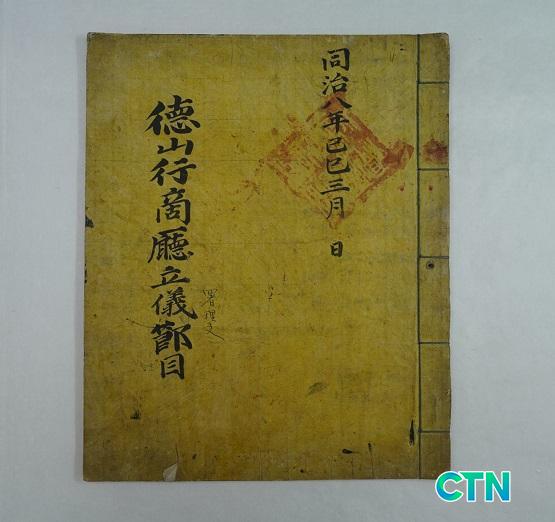 同治八年己巳三月 日
德山行商廳立儀節目
CTN